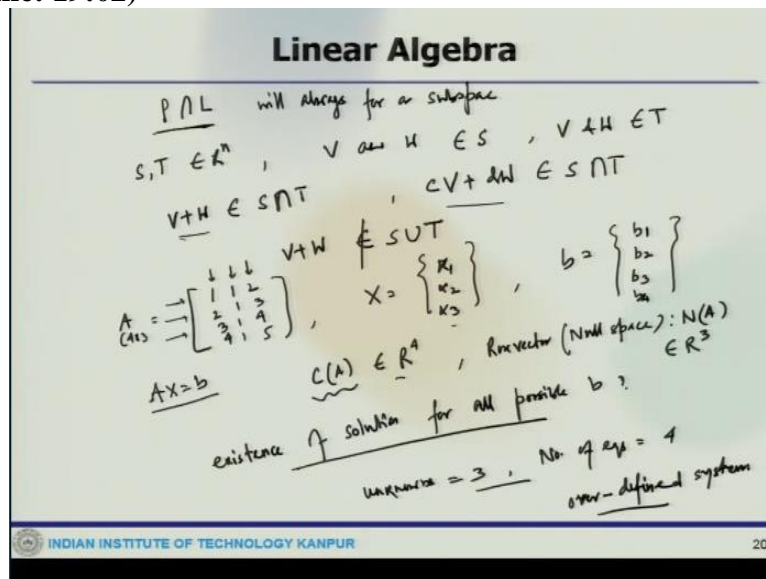 Linear Algebra
P ∩ L will always for a subspac
S,T ∈ R^n , V and W ∈ S , V & W ∈ T
V+W ∈ S∩T , CV + dW ∈ S ∩ T
V+W ∉ S∪T
A (4×3) = [1 1 2; 2 1 3; 3 1 4; 4 1 5] , X = {x1 x2 x3} , b = {b1 b2 b3 b4}
AX=b C(A) ∈ R^4 , Row vector (Null space) : N(A) ∈ R^3
existence of solution for all possible b ?
unknowns = 3 , No. of eqs = 4
over-defined system
INDIAN INSTITUTE OF TECHNOLOGY KANPUR
20